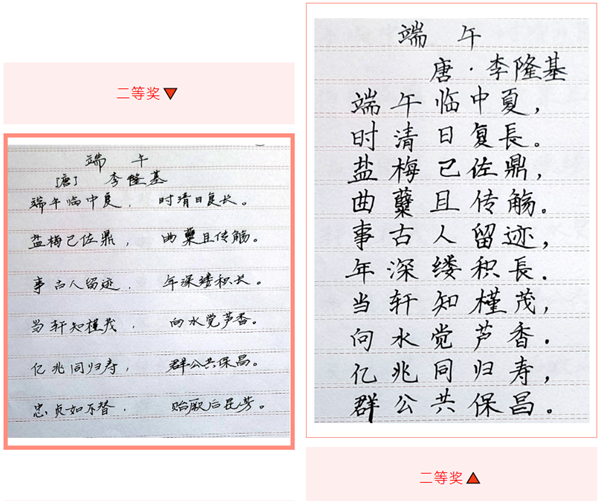 二等奖
端午
[唐] 李隆基
端午临中夏， 时清日复长。
盐梅已佐鼎， 曲蘖且传觞。
事古人留迹， 年深缕积长。
当轩知槿茂， 向水觉芦香。
亿兆同归寿， 群公共保昌。
忠贞如不替， 贻厥后昆芳。
端午
唐·李隆基
端午临中夏，
时清日复長。
盐梅已佐鼎，
曲糵且传觞。
事古人留迹，
年深缕积長。
当轩知槿茂，
向水觉芦香。
亿兆同归寿，
群公共保昌。
二等奖